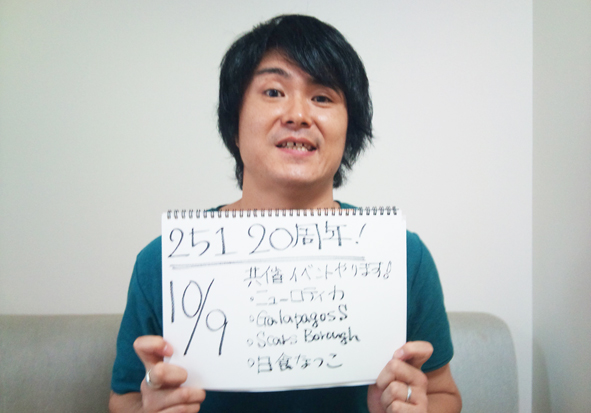 251 20周年!
10/9
共催イベントやります!
・ニューロティカ
・GalapagosS
・Scars Borough
・日食なつこ